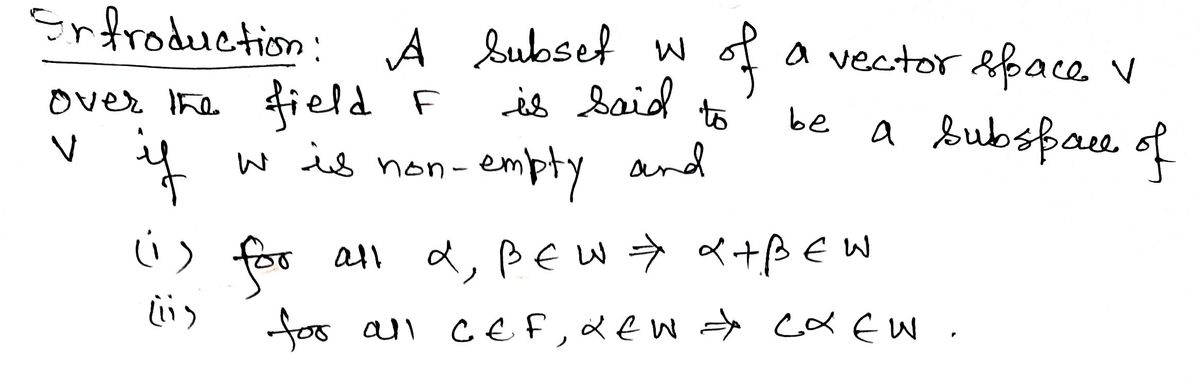 Introduction: A subset W of a vector space V
over the field F is said to be a subspace of
V if W is non-empty and
(i) for all α, β ∈ W ⇒ α+β ∈ W
(ii) for all c ∈ F, α ∈ W ⇒ cα ∈ W .